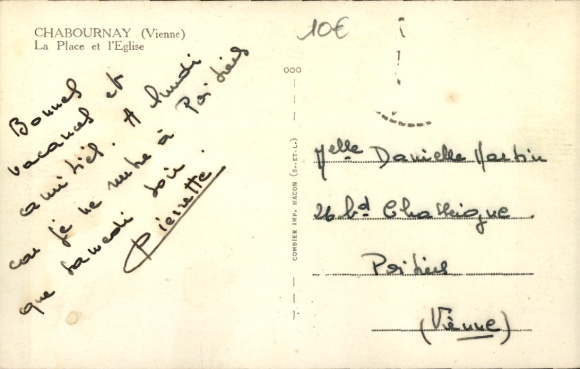 CHABOURNAY (Vienne)
La Place et l'Eglise
Bonnes
vacances et
amitiés. A lundi
car je ne rentre à Poitiers
que samedi soir.
Pierrette
10€
COMBIER IMP. MACON (S.-ET-L.)
Melle Danielle Martin
26 bd Chasseigne
Poitiers
(Vienne)